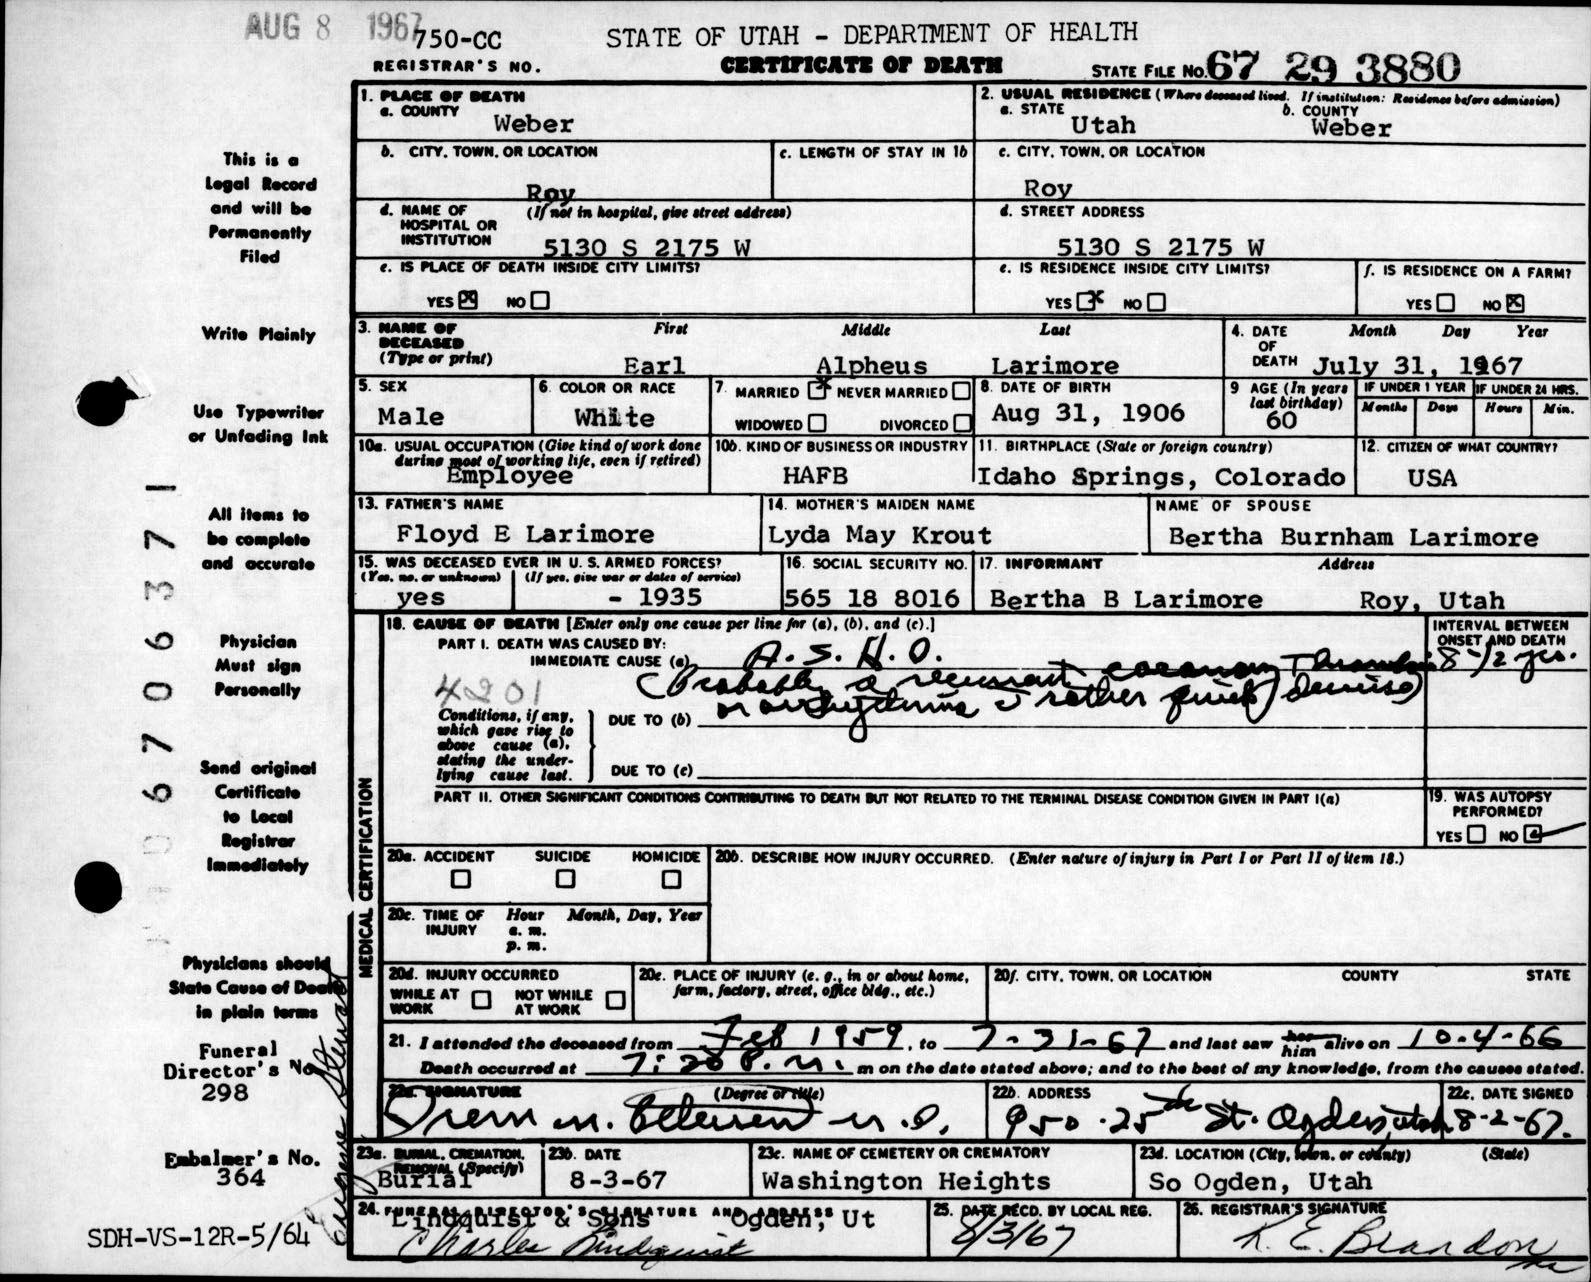 AUG 8 1967
750-CC
REGISTRAR'S NO.
STATE OF UTAH - DEPARTMENT OF HEALTH
CERTIFICATE OF DEATH
STATE FILE NO. 67 29 3880
This is a
Legal Record
and will be
Permanently
Filed
Write Plainly
Use Typewriter
or Unfading Ink
All items to
be complete
and accurate
Physician
Must sign
Personally
Send original
Certificate
to Local
Registrar
Immediately
Physicians should
State Cause of Death
in plain terms
Funeral
Director's No.
298
Embalmer's No.
364
SDH-VS-12R-5/64
Eugene Steward
6706371
1. PLACE OF DEATH
a. COUNTY
Weber
2. USUAL RESIDENCE (Where deceased lived. If institution: Residence before admission)
a. STATE
Utah
b. COUNTY
Weber
b. CITY, TOWN, OR LOCATION
Roy
c. LENGTH OF STAY IN 1b
c. CITY, TOWN, OR LOCATION
Roy
d. NAME OF HOSPITAL OR INSTITUTION
(If not in hospital, give street address)
5130 S 2175 W
d. STREET ADDRESS
5130 S 2175 W
e. IS PLACE OF DEATH INSIDE CITY LIMITS?
YES X NO
e. IS RESIDENCE INSIDE CITY LIMITS?
YES X NO
f. IS RESIDENCE ON A FARM?
YES NO X
3. NAME OF DECEASED (Type or print)
First Middle Last
Earl Alpheus Larimore
4. DATE OF DEATH
Month Day Year
July 31, 1967
5. SEX
Male
6. COLOR OR RACE
White
7. MARRIED X NEVER MARRIED
WIDOWED DIVORCED
8. DATE OF BIRTH
Aug 31, 1906
9 AGE (In years last birthday)
60
IF UNDER 1 YEAR
Months Days
IF UNDER 24 HRS.
Hours Min.
10a. USUAL OCCUPATION (Give kind of work done during most of working life, even if retired)
Employee
10b. KIND OF BUSINESS OR INDUSTRY
HAFB
11. BIRTHPLACE (State or foreign country)
Idaho Springs, Colorado
12. CITIZEN OF WHAT COUNTRY?
USA
13. FATHER'S NAME
Floyd E Larimore
14. MOTHER'S MAIDEN NAME
Lyda May Krout
NAME OF SPOUSE
Bertha Burnham Larimore
15. WAS DECEASED EVER IN U. S. ARMED FORCES?
(Yes, no, or unknown) (If yes, give war or dates of service)
yes - 1935
16. SOCIAL SECURITY NO.
565 18 8016
17. INFORMANT Address
Bertha B Larimore Roy, Utah
MEDICAL CERTIFICATION
18. CAUSE OF DEATH [Enter only one cause per line for (a), (b), and (c).]
INTERVAL BETWEEN ONSET AND DEATH
PART I. DEATH WAS CAUSED BY:
IMMEDIATE CAUSE (a) A. S. H. D. 8 1/2 yrs.
(Probably a recurrent coronary Thrombosis
or arrhythmia c rather quick demise)
4201
Conditions, if any, which gave rise to above cause (a), stating the underlying cause last.
DUE TO (b)
DUE TO (c)
PART II. OTHER SIGNIFICANT CONDITIONS CONTRIBUTING TO DEATH BUT NOT RELATED TO THE TERMINAL DISEASE CONDITION GIVEN IN PART I(a)
19. WAS AUTOPSY PERFORMED?
YES NO
20a. ACCIDENT SUICIDE HOMICIDE
20b. DESCRIBE HOW INJURY OCCURRED. (Enter nature of injury in Part I or Part II of item 18.)
20c. TIME OF INJURY
Hour Month, Day, Year
a. m.
p. m.
20d. INJURY OCCURRED
WHILE AT WORK NOT WHILE AT WORK
20e. PLACE OF INJURY (e. g., in or about home, farm, factory, street, office bldg., etc.)
20f. CITY, TOWN, OR LOCATION COUNTY STATE
21. I attended the deceased from Feb 1959, to 7-31-67 and last saw her him alive on 10-4-66
Death occurred at 7:20 P. M. m on the date stated above; and to the best of my knowledge, from the causes stated.
22a. SIGNATURE (Degree or title)
M. D.
22b. ADDRESS
950 - 25th St. Ogden, Utah
22c. DATE SIGNED
8-2-67.
23a. BURIAL, CREMATION, REMOVAL (Specify)
Burial
23b. DATE
8-3-67
23c. NAME OF CEMETERY OR CREMATORY
Washington Heights
23d. LOCATION (City, town, or county) (State)
So Ogden, Utah
24. FUNERAL DIRECTOR'S SIGNATURE AND ADDRESS
Lindquist & Sons Ogden, Ut
Charles Lindquist
25. DATE RECD. BY LOCAL REG.
8/3/67
26. REGISTRAR'S SIGNATURE
K. E. Brandon